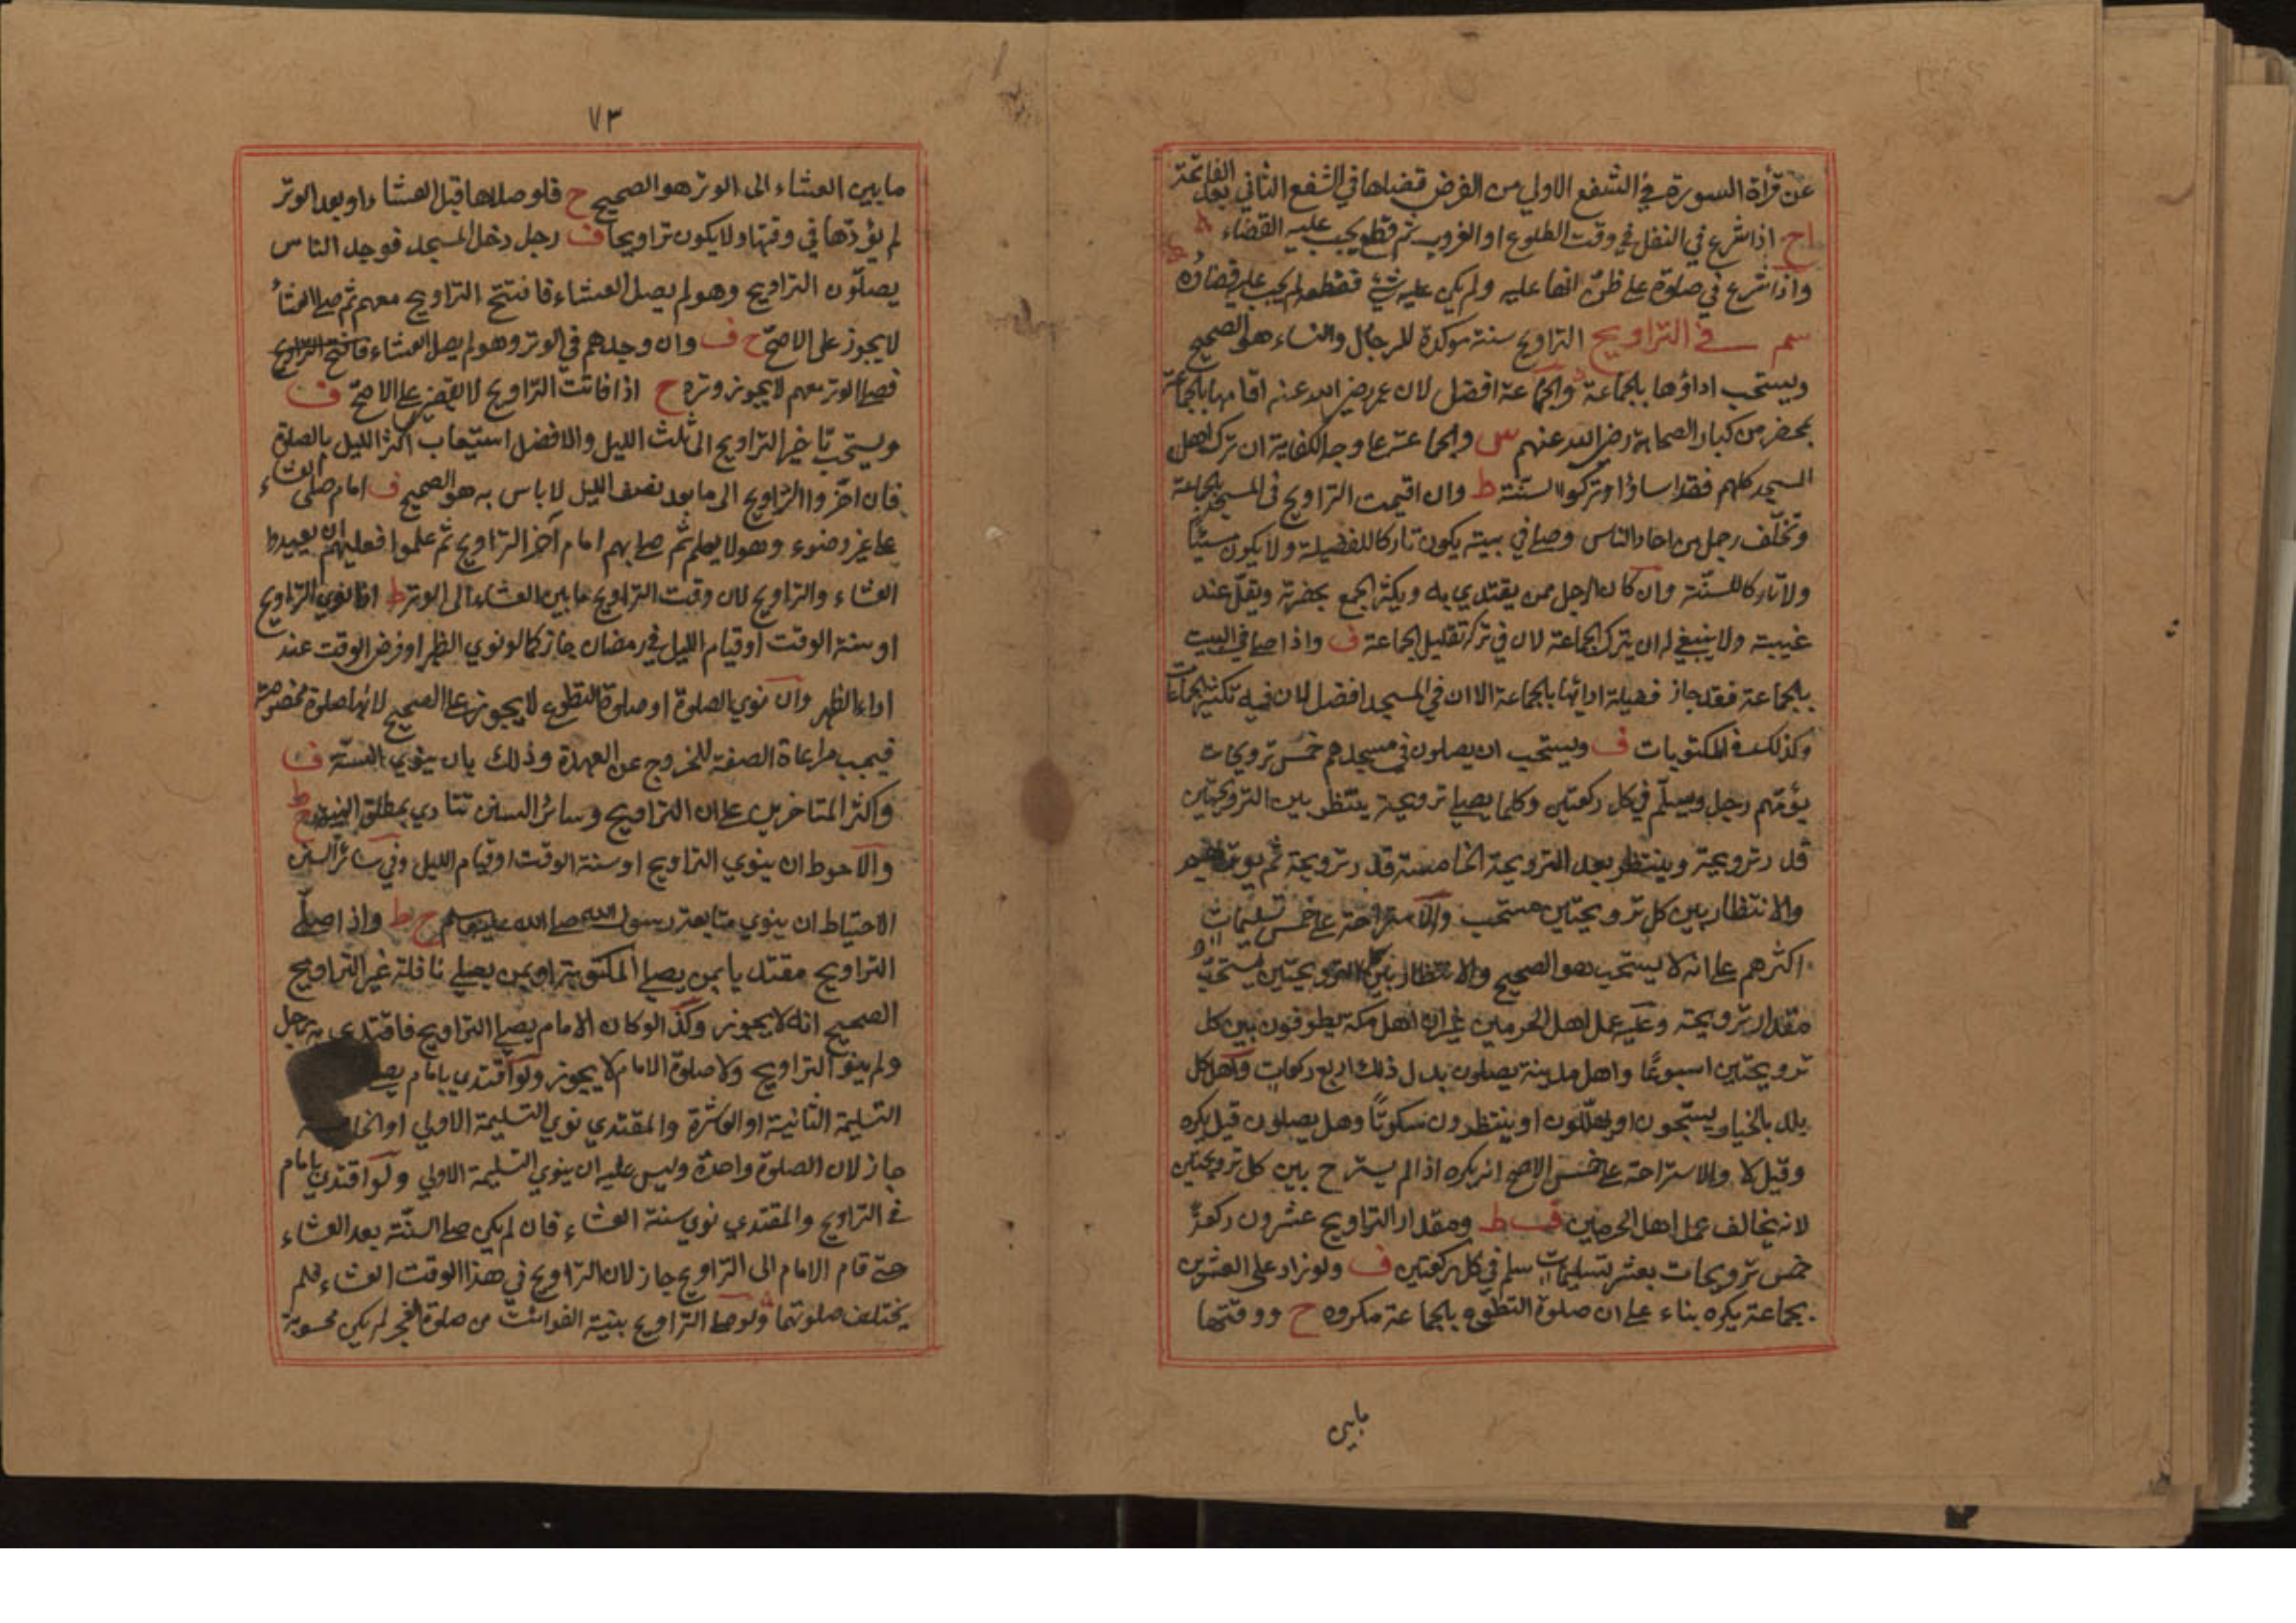 عن قرأة السورة في الشفع الاول من الفرض قضاها في الشفع الثاني بعد الفاتحة
اح اذا شرع في النفل في وقت الطلوع او الغروب ثم قطع يجب عليه القضاء
واذا شرع في صلوة على ظن انها عليه ولم يكن عليه شئ فقطع لم يجب عليه قضاؤه
سم في التراويح التراويح سنة موكدة للرجال والنساء هو الصحيح
ويستحب اداؤها بالجماعة والجماعة افضل لان عمر رضي الله عنه اقامها بالجماعة
بمحضر من كبار الصحابة رضي الله عنهم س والجماعة على وجه الكفاية ان ترك اهل
المسجد كلهم فقد اساؤا وتركوا السنة ط وان اقيمت التراويح في المسجد بالجماعة
وتخلف رجل من احاد الناس وصلى في بيته يكون تاركا للفضيلة ولا يكون مسيئا
ولا تاركا للسنة وان كان الرجل ممن يقتدي به ويكثر الجمع بحضرته ويقل عند
غيبته ولا ينبغي له ان يترك الجماعة لان في تركه تقليل الجماعة ف واذا صلى في البيت
بالجماعة فقد جاز فضيلة ادائها بالجماعة الا ان في المسجد افضل لان فيه تكثير الجماعات
وكذلك في المكتوبات ف ويستحب ان يصلون في مسجدهم خمس ترويحات
يؤمهم رجل ويسلم في كل ركعتين وكلما يصلي ترويحة ينتظر بين الترويحتين
قدر ترويحة وينتظر بعد الترويحة الخامسة قدر ترويحة ثم يوتر
والانتظار بين كل ترويحتين مستحب والاستراحة على خمس تسليمات
اكثرهم على انه لا يستحب هو الصحيح والانتظار بين كل الترويحتين يستحب
مقدار ترويحة وعليه عمل اهل الحرمين غير ان اهل مكة يطوفون بين كل
ترويحتين اسبوعًا واهل مدينة يصلون بدل ذلك اربع ركعات واهل كل
بلد بالخيار يسبحون او يهللون او ينتظرون سكوتًا وهل يصلون قيل يكره
وقيل لا والاستراحة على خمس الاصح انه يكره اذا لم يسترح بين كل ترويحتين
لانه يخالف عمل اهل الحرمين ف ط ومقدار التراويح عشرون ركعة
خمس ترويحات بعشر تسليمات يسلم في كل ركعتين ف ولو زاد على العشرين
بجماعة يكره بناء على ان صلوة التطوع بالجماعة مكروه ح ووقتها
مابين
٧٣
مابين العشاء الى الوتر هو الصحيح ح فلو صلاها قبل العشاء او بعد الوتر
لم يؤدها في وقتها ولا يكون تراويحا ف رجل دخل المسجد فوجد الناس
يصلون التراويح وهو لم يصل العشاء فافتتح التراويح معهم ثم صلى العشاء
لا يجوز على الاصح ح ف وان وجدهم في الوتر وهو لم يصل العشاء فافتتح التراويح
فصلى الوتر معهم لا يجوز وتره ح اذا فاتت التراويح لا تقضى على الاصح ف
ويستحب تاخير التراويح الى ثلث الليل والافضل استيعاب اكثر الليل بالصلوة
فان اخروا التراويح الى ما بعد نصف الليل لا باس به هو الصحيح ف امام صلى العشاء
على غير وضوء وهو لا يعلم ثم صلى بهم امام آخر التراويح ثم علموا فعليهم ان يعيدوا
العشاء والتراويح لان وقت التراويح مابين العشاء الى الوتر ط اذا نوى التراويح
او سنة الوقت او قيام الليل في رمضان جاز كما لو نوي الظهر او فرض الوقت عند
اداء الظهر وان نوي الصلوة او صلوة التطوع لا يجوز على الصحيح لانها صلوة مخصوصة
فيجب مراعاة الصفة للخروج عن العهدة وذلك بان ينوي السنة ف
واكثر المتاخرين على ان التراويح وسائر السنن تتادي بمطلق النية ط ح
والاحوط ان ينوي التراويح او سنة الوقت او قيام الليل وفي سائر السنن
الاحتياط ان ينوي متابعة رسول الله صلى الله عليه وسلم ح ط واذا صلى
التراويح مقتديا بمن يصلي المكتوبة او بمن يصلي نافلة غير التراويح
الصحيح انه لا يجوز وكذا لو كان الامام يصلي التراويح فاقتدى به رجل
ولم ينو التراويح ولا صلوة الامام لا يجوز ولو اقتدي بامام يصلي
التسليمة الثانية او العاشرة والمقتدي نوي التسليمة الاولي او
جاز لان الصلوة واحدة وليس عليه ان ينوي التسليمة الاولي ولو اقتدي بامام
في التراويح والمقتدي نوي سنة العشاء فان لم يكن صلى السنة بعد العشاء
حتى قام الامام الى التراويح جاز لان التراويح في هذا الوقت العشاء فلم
يختلف صلوتهما ولو صلى التراويح بنية الفوائت من صلوة الفجر لم يكن محسوبة